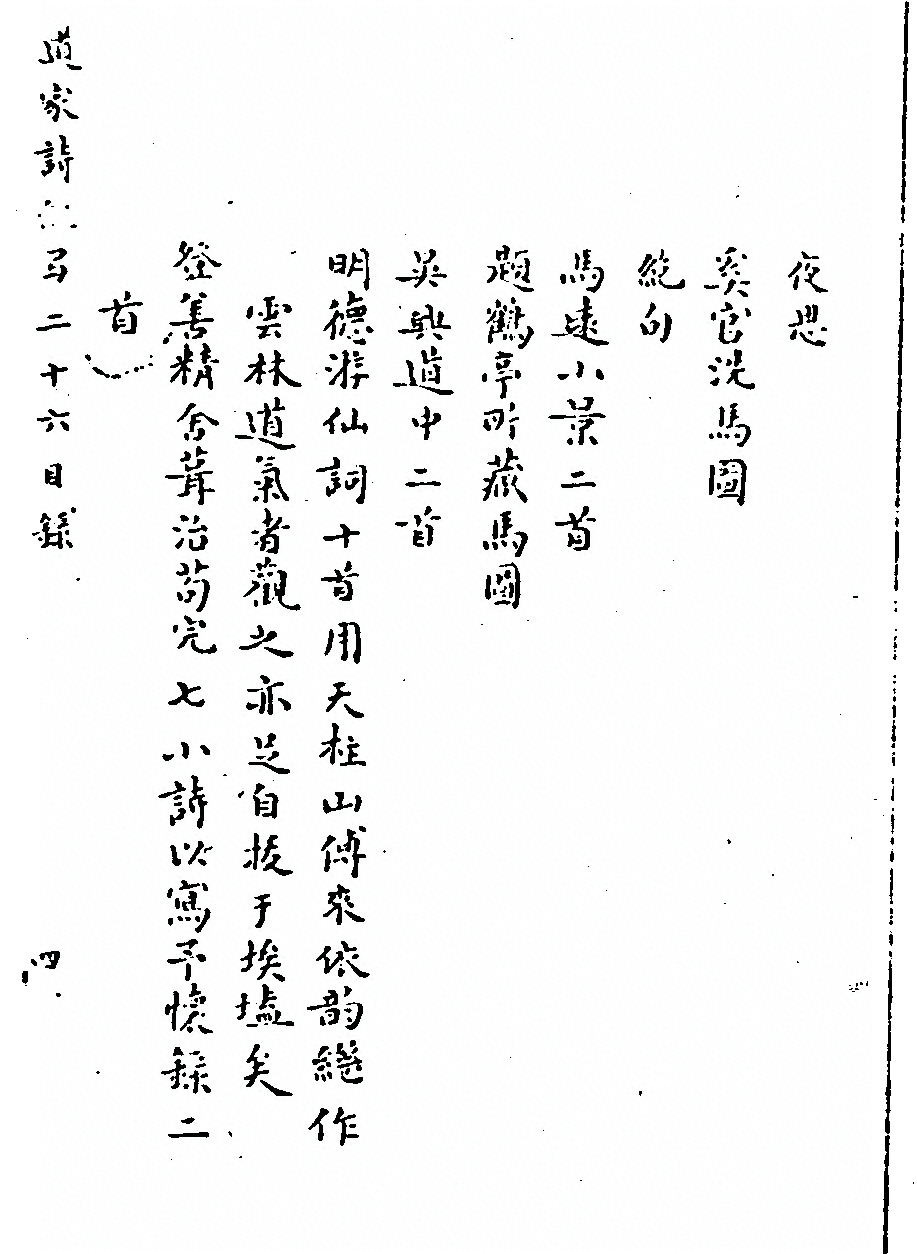 夜思
奚官洗馬圖
絶句
馬遠小景二首
題鶴亭所藏馬圖
吳興道中二首
明德游仙詞十首用天柱山傅來依韵繼作
雲林道氣者觀之亦足自拔于埃壒矣
登善精舍葺治苟完七小詩以寫予懷錄二
首
道家詩 二十六目錄
四